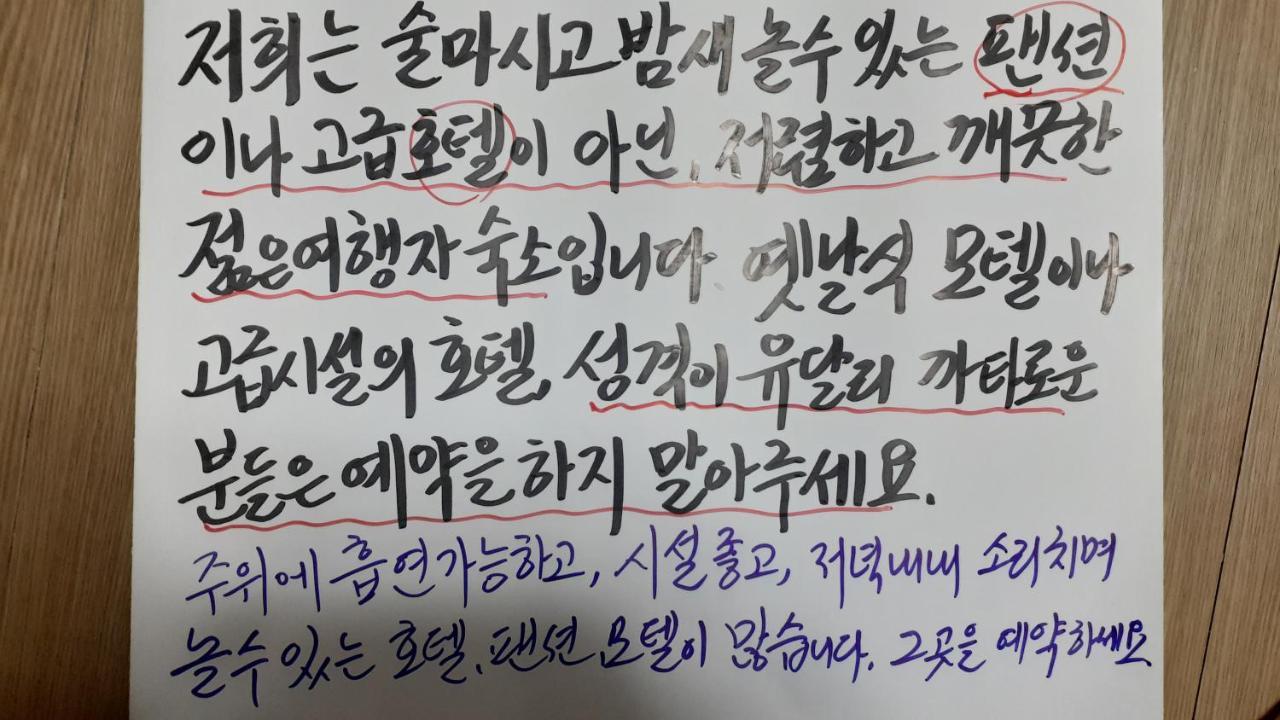 저희는 술마시고 밤새 놀수 있는 팬션
이나 고급호텔이 아닌, 저렴하고 깨끗한
젊은여행자 숙소입니다. 옛날식 모텔이나
고급시설의 호텔, 성격이 유달리 까타로운
분들은 예약을 하지 말아주세요.
주위에 흡연가능하고, 시설좋고, 저녁내내 소리치며
놀수 있는 호텔, 팬션, 모텔이 많습니다. 그곳을 예약하세요